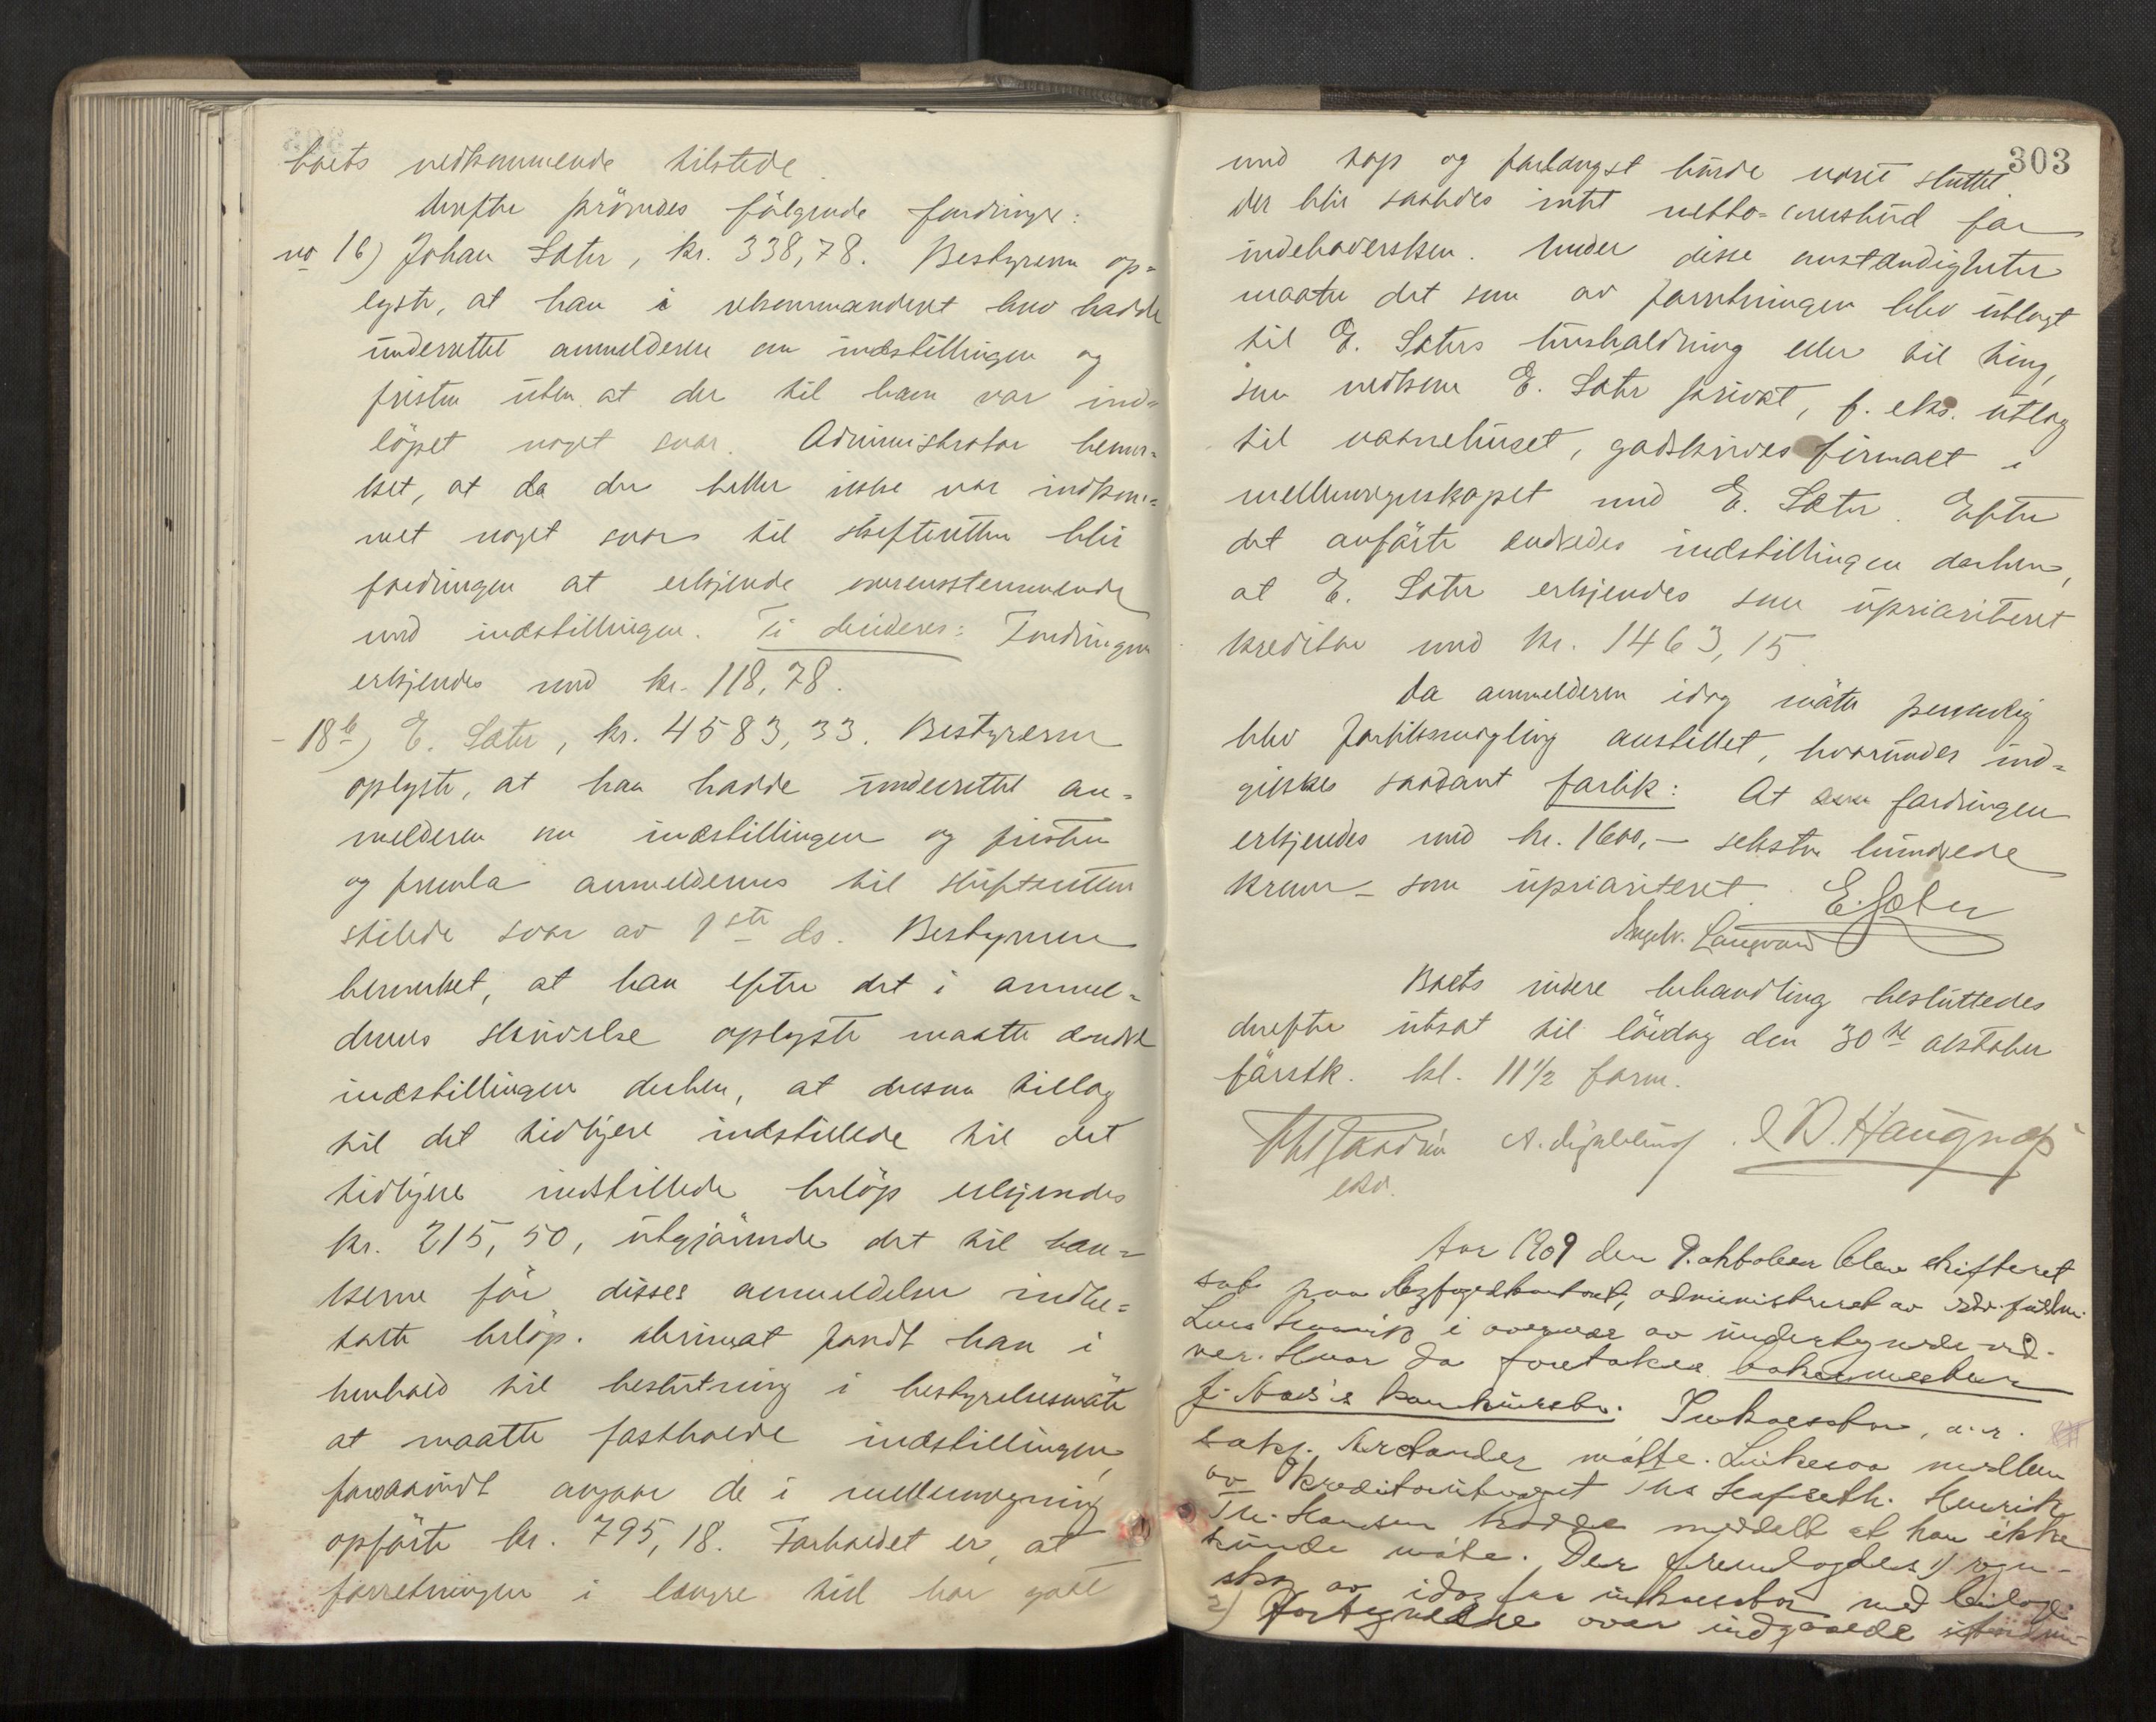 boets vedkommende tilstede.
Derefter prövedes fölgende fordringer:
no 16) Johan Sæter, kr. 338,78. Bestyreren op-
lyste, at han i rekommanderet brev hadde
underrettet anmelderen om indstillingen og
fristen uten at der til ham var ind-
löpet noget svar. Administrator bemer-
ket, at da der heller ikke var indkom-
met noget svar til skifteretten blir
fordringen at erkjende overensstemmende
med indstillingen. Ti decideres: Fordringen
erkjendes med kr. 118,78.
- 18 b) E. Sæter, kr. 4583,33. Bestyreren
oplyste, at han hadde underrettet an-
melderen om indstillingen og fristen
og fremla anmelderens til skifteretten
stilede svar av 1ste ds. Bestyreren
bemerket, at han efter det i anmel-
derens skrivelse oplyste maatte ændre
indstillingen derhen, at desuten tillæg
til det tidligere indstillede til det
tidligere indstillede belöp erkjendes
kr. 215,50, utgjörende det til ban-
kerne för disses anmeldelser indbe-
talte belöp. Derimot fandt han i
henhold til beslutning i bestyrelsesmöte
at maatte fastholde indstillingen,
forsaavidt angaar de i mellemregning
opförte kr. 795,18. Forholdet er, at
forretningen i længre tid har gaat
303
med tap og forlængst burde været sluttet.
Der blir saaledes intet netto-utbud for
indehaversken. Under disse omstændigheter
maatte det som av forretningen blev utlagt
til E. Sæters husholdning eller til ting,
som vedkom E. Sæter privat, f. eks. utlæg
til vaanehuset, godskrives firmaet i
mellemregnskapet med E. Sæter. Efter
det anförte ændredes indstillingen derhen,
at E. Sæter erkjendes som uprioritert
kreditor med kr. 1463,15.
Da anmelderen idag möter personlig
blev forliksmægling anstillet, hvorunder ind-
gikkes saadant forlik: At fordringen
erkjendes med kr. 1600,- seksten hundrede
kroner - som uprioriteret. E. Sæter
Ingelv. Langvand
Boets videre behandling besluttedes
derefter utsat til lördag den 30te oktober
förstk. kl. 11½ form.
A. O. D. Haugnæs
Aar 1909 den 9. oktober blev skifteret
sat paa byfogedkontoret, administreret av edv. fuldm.
Lars i overvær av undertegnede vid-
ner. Hvor da foretokes bakermester
J. Aas's konkursbo. Inkassator, o.r.
saksf. mötte. Likesaa medlem
av kreditorutvalget Henrik
Th. Hansen hadde meddelt at han ikke
kunde möte. Der fremlagdes 1) regn-
skap av idag fra inkassator med bilag.
2) Fortegnelse over indgaaede